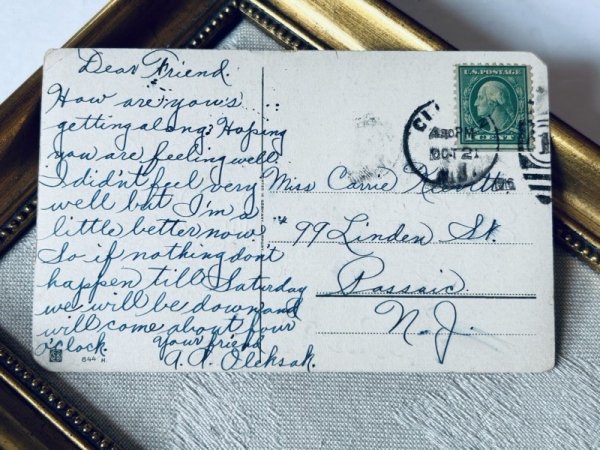 Dear Friend.
How are you's
getting along? Hoping
you are feeling well
I didn't feel very
well but I'm a
little better now
So if nothing don't
happen till Saturday
we will be down and
will come about four
o'clock.
your friend
A. A. Oleksak.
844 H
U.S. POSTAGE
430 PM
OCT 21
Miss Carrie
99 Linden St.
Passaic
N.J.